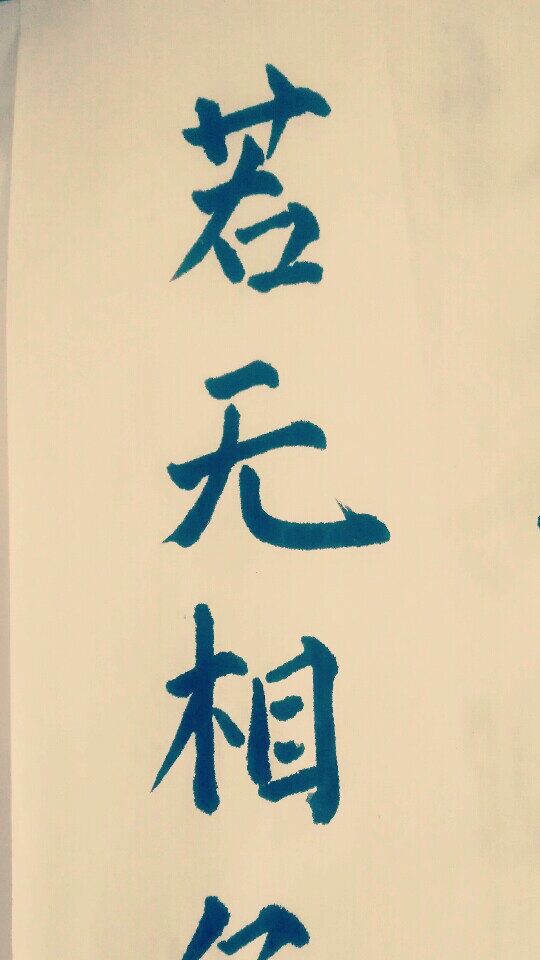 若无相